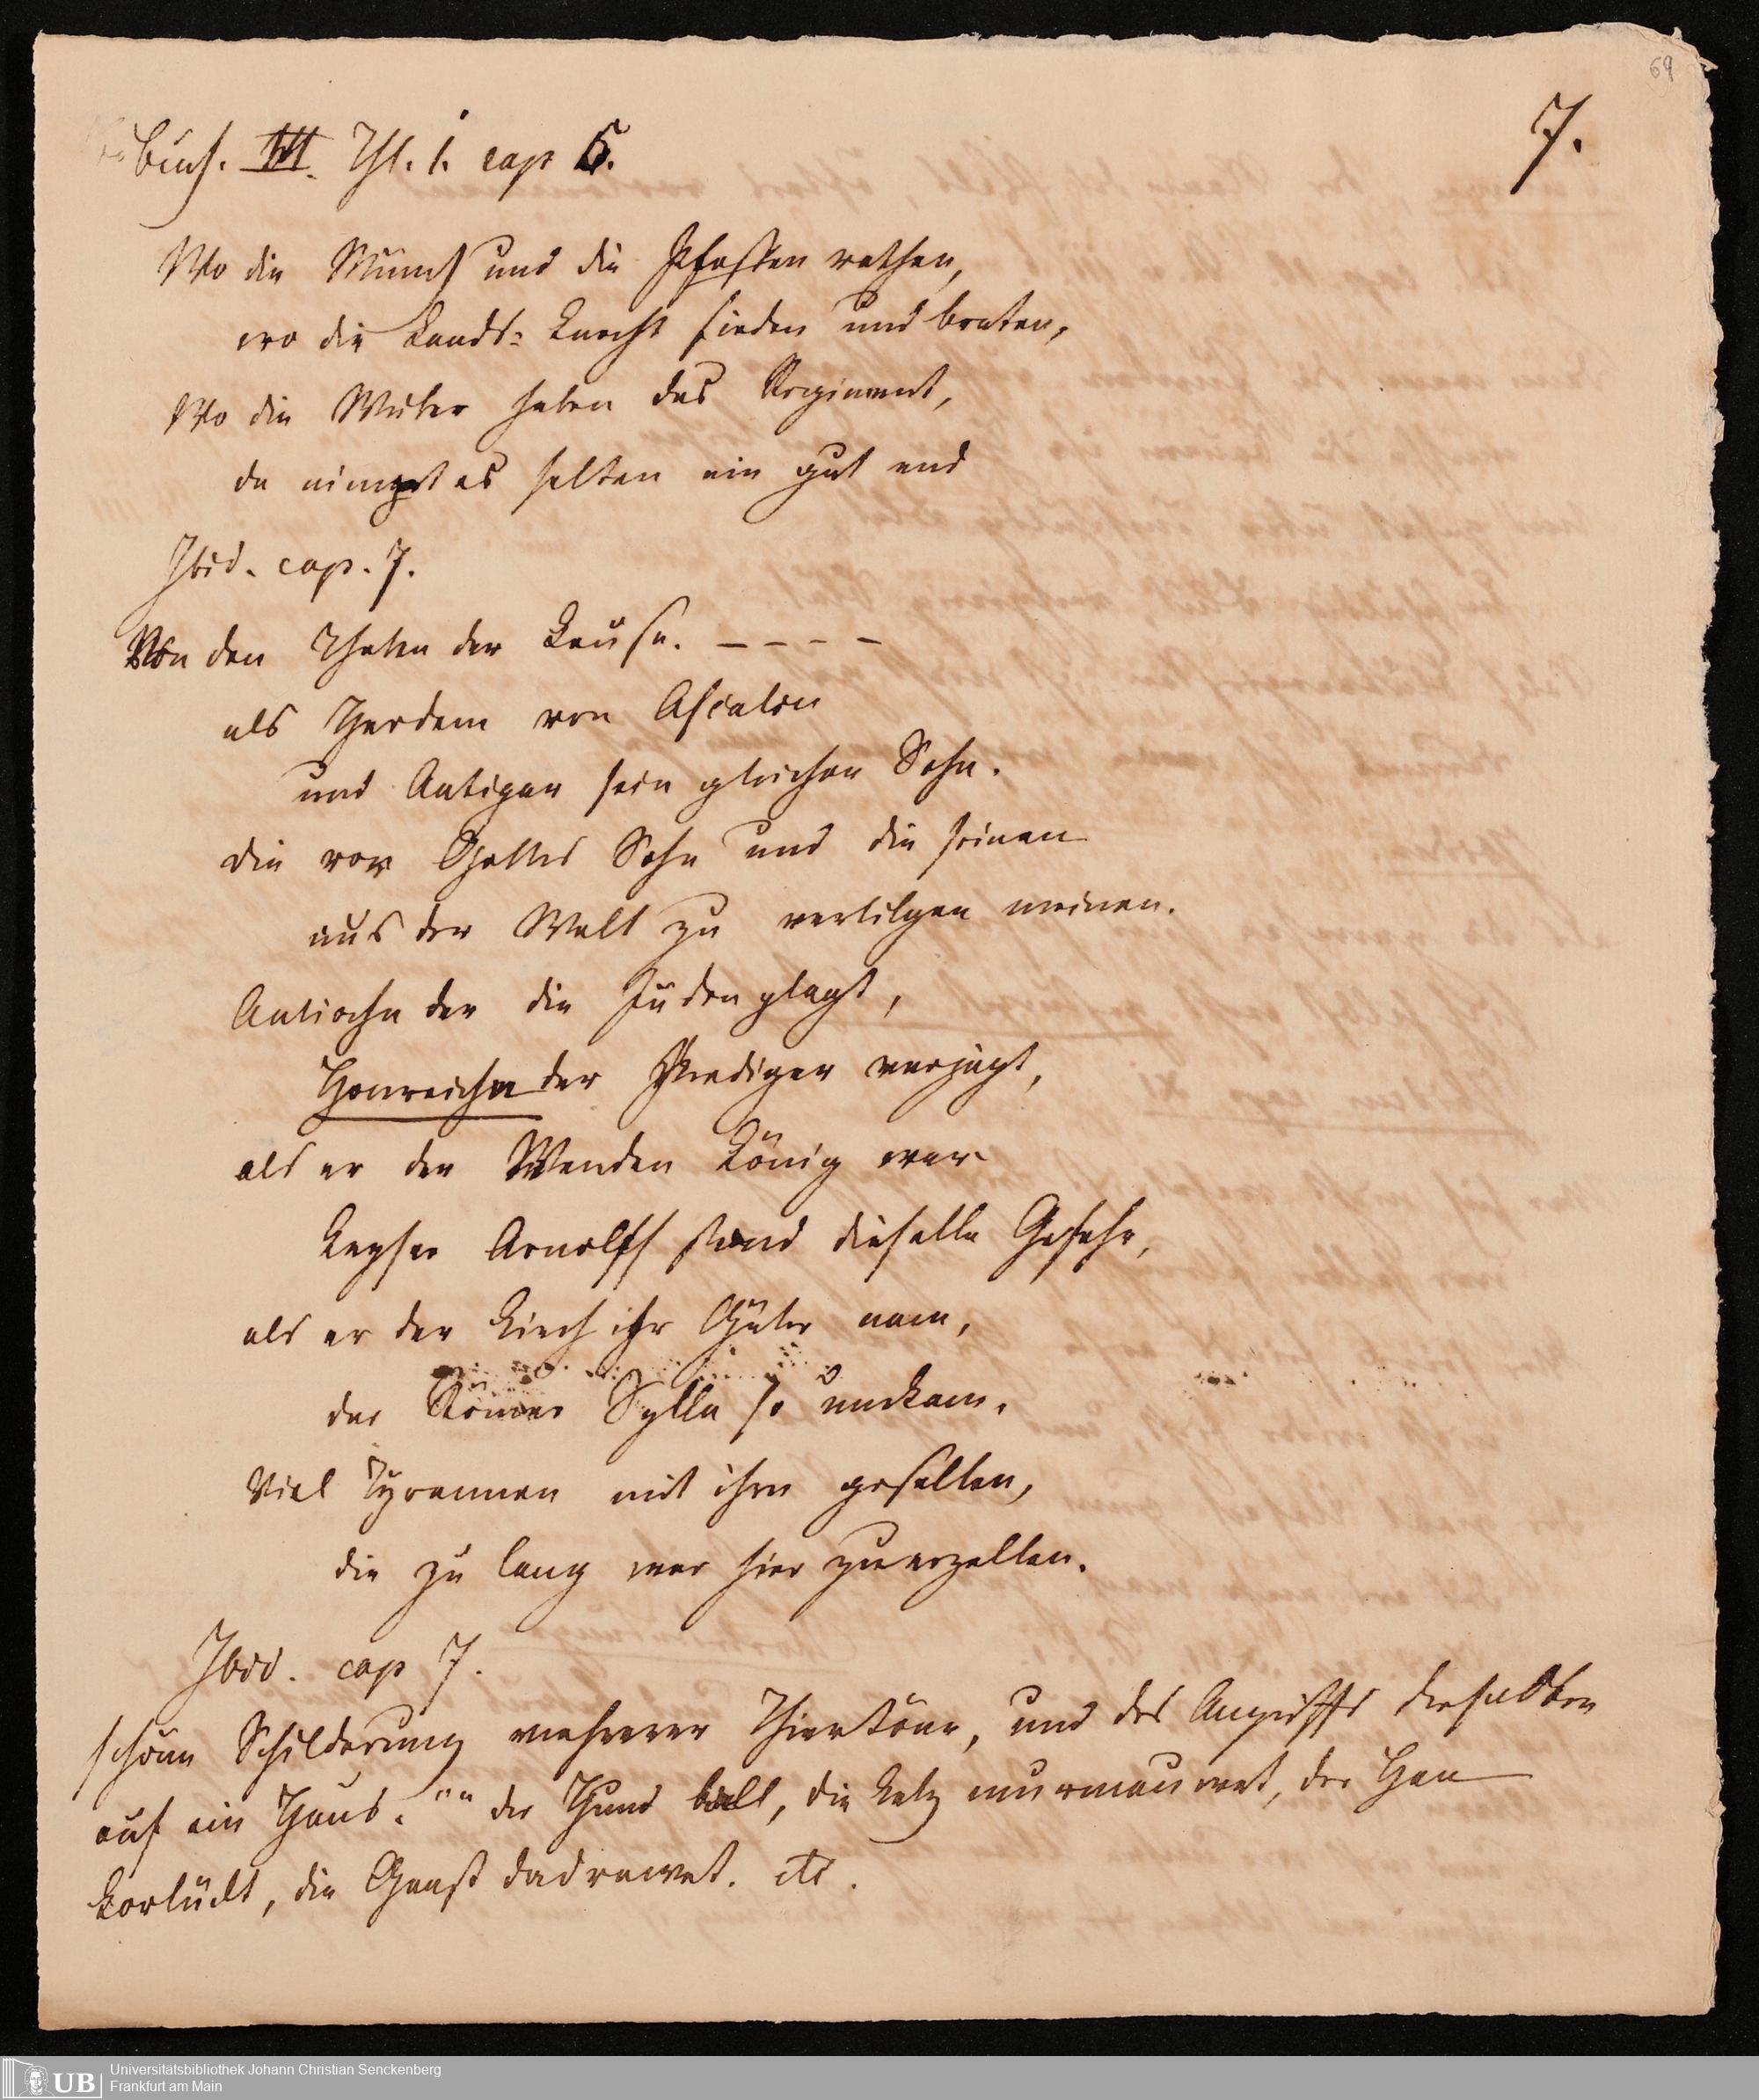 69
7.
Buch. III. Thl. 1. cap 6.
Wo die Münch und die Pfaffen rathen,
wo die Landt-Knecht sieden und braten,
Wo die Weiber haben das Regiment,
da nimpt es selten ein gut end
Ibid. cap. 7.
Von den Thaten der Leuse. – – – –
als Herdem von Ascalon
und Antipar sein gleicher Sohn.
die vor Gottes Sohn und die seinen
aus der Welt zu vertilgen meinen.
Antioche der die Juden plagt,
Honreiche der Prediger verjagt,
als er der Wenden König war
Keyser Arnolff stand dieselbe Gefahr,
als er der Kirch ihr Güter nam,
der Römer Sylla so umkam.
Viel Tyrannen mit ihrn gesellen,
die zu lang war hier zu erzellen.
Ibid. cap 7.
schöne Schilderung mehrerer Thiertöne, und des Angriffs derselben
auf ein Haus. "" der Hund ball, die Katz murmauwet, der Han
korlückt, die Ganß dadrawet. etc.
Universitätsbibliothek Johann Christian Senckenberg
Frankfurt am Main
UB